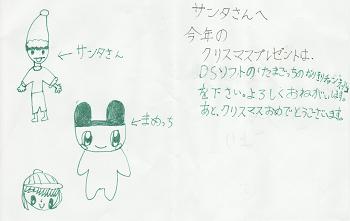 サンタさんへ
今年の
クリスマスプレゼントは、
DSソフトのたまごっちの
を下さい。よろしくおねがいします。
あと、クリスマスおめでとうございます。
サンタさん
まめっち